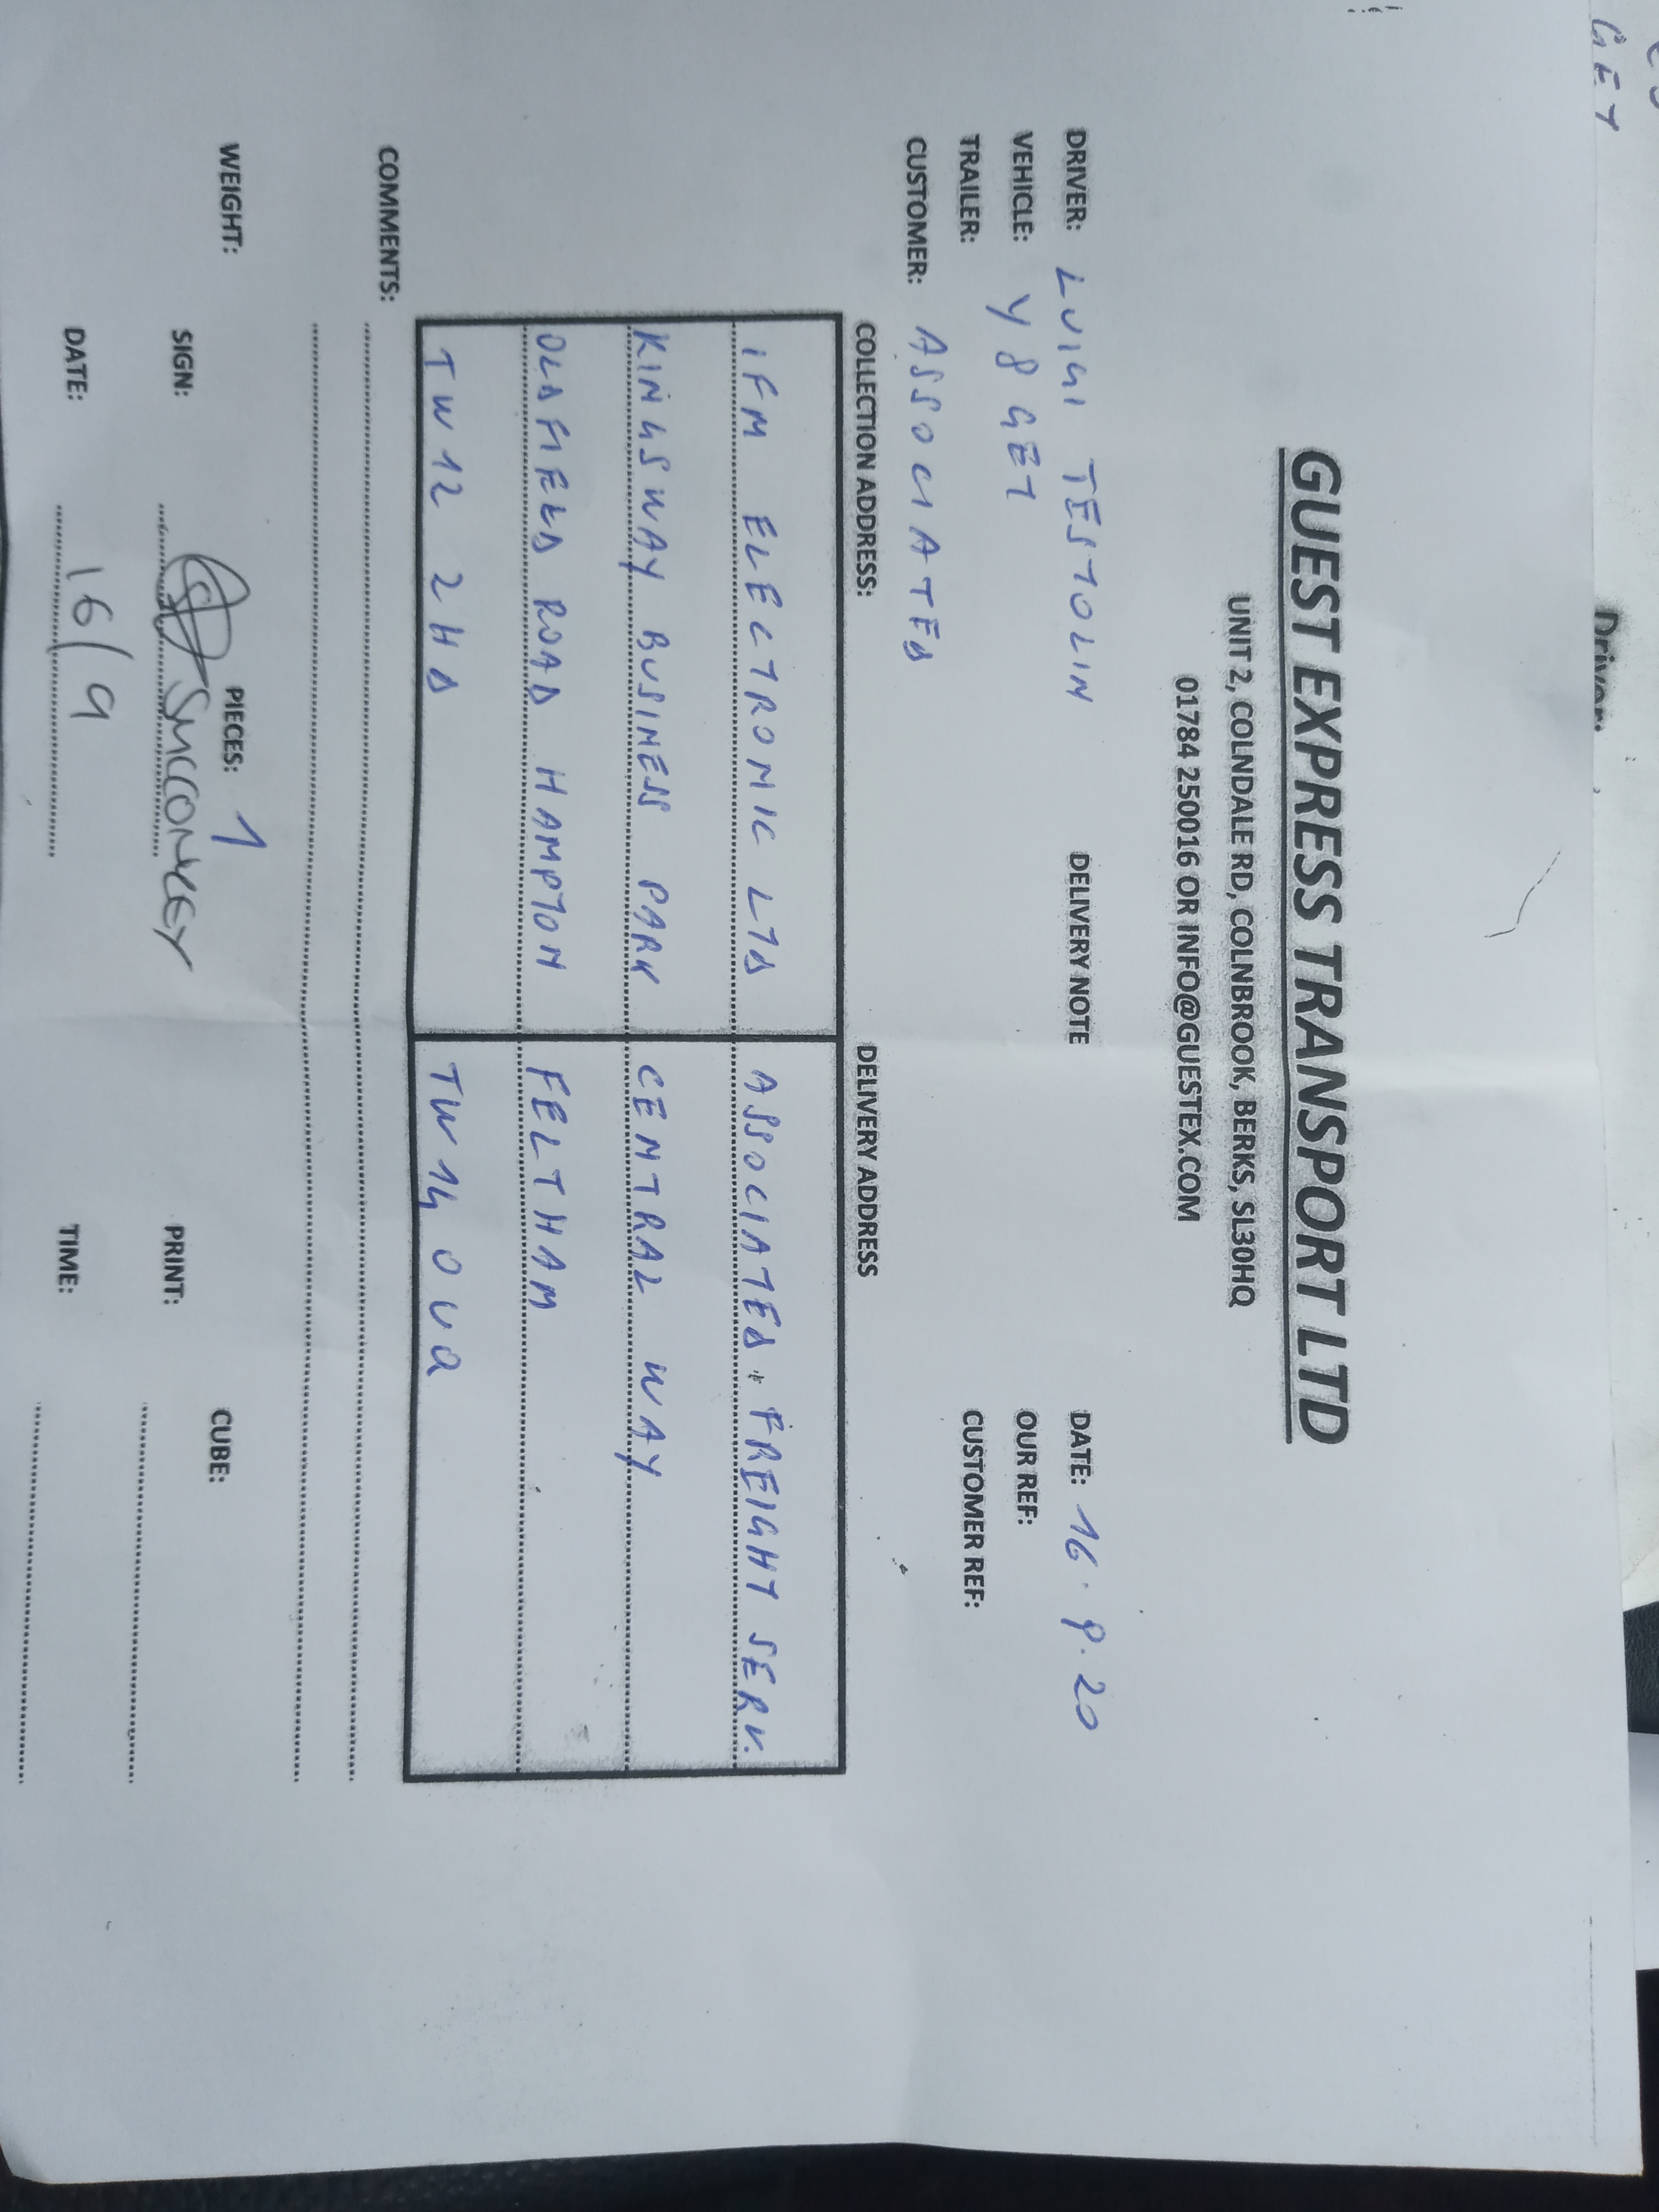 GEY
Driver:
GUEST EXPRESS TRANSPORT LTD
UNIT 2, COLNDALE RD, COLNBROOK, BERKS, SL30HQ
01784 250016 OR INFO@GUESTEX.COM
DELIVERY NOTE
DRIVER: LUIGI TESTOLIN DATE: 16.9.20
VEHICLE: Y8 GET OUR REF:
TRAILER: CUSTOMER REF:
CUSTOMER: ASSOCIATED
COLLECTION ADDRESS: DELIVERY ADDRESS
IFM ELECTRONIC LTD ASSOCIATED FREIGHT SERV.
KINGSWAY BUSINESS PARK CENTRAL WAY
OLDFIELD ROAD HAMPTON FELTHAM
TW12 2HD TW14 0UQ
COMMENTS:
WEIGHT: PIECES: 1 CUBE:
SIGN: PRINT:
DATE: 16/9 TIME: